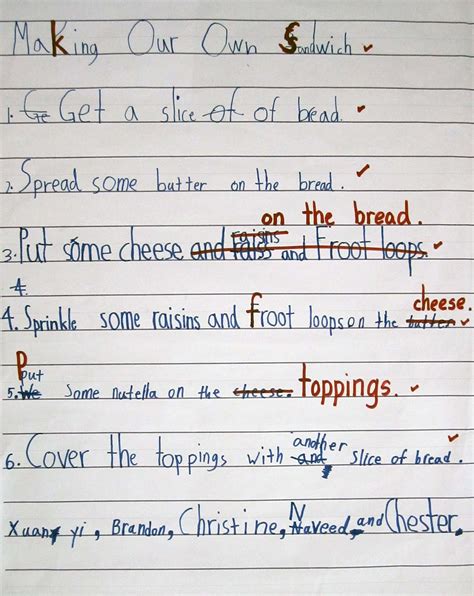 Making Our Own Sandwich ✓
1. Ge Get a slice of of bread. ✓
2. Spread some butter on the bread. ✓
on the bread.
raisins
3. Put some cheese and raiss and Froot loops. ✓
4.
cheese.
4. Sprinkle some raisins and froot loops on the butter ✓
Put
5. We Some nutella on the cheese. toppings. ✓
another
6. Cover the toppings with and slice of bread. ✓
Xuan yi, Brandon, Christine, Naveed, and Chester.